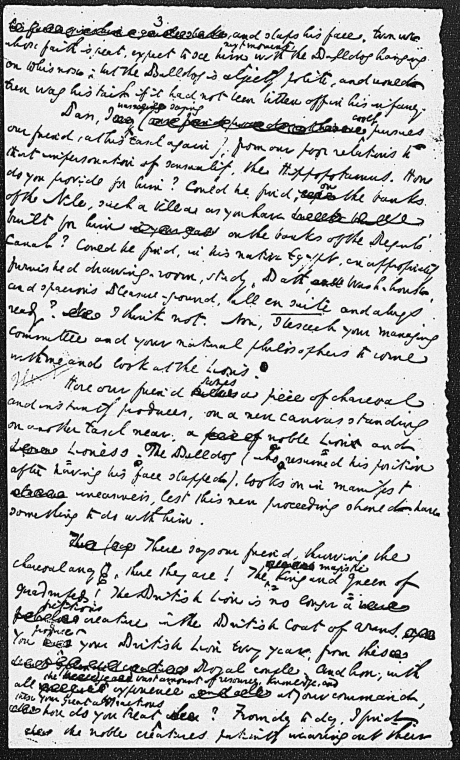 3
and slaps his face, turn we
whose faith is great, expect to see him next moment with the Bulldog hanging
on to his nose; but the Bulldog is abjectly polite, and would
even wag his tail if it had not been bitten off in his infancy.
Dass, I saying coolly pursues
our friend, at his Easel again, from our poor relations to
that impersonation of sensuality, the Hippopotamus. How
do you provide for him? Could he find, on the banks
of the Nile, such a villa as you have
built for him on the banks of the Regents'
Canal? Could he find, in his native Egypt, an appropriately
furnished drawing-room, study, Bath Wash-house,
and spacious Pleasure-ground, all en suite and always
ready? I think not. Now, I beseech your managing
committee and your natural philosophers to come
with me and look at the Lions.
Here our friend seizes a piece of charcoal
and instantly produces, on a new canvas standing
on another Easel near, a noble Lion and
Lioness. The Bulldog (who resumed his position
after having his face slapped), looks on in manifest
uneasiness, lest this new proceeding should have
something to do with him.
There says our friend, throwing the
charcoal away, there they are! The majestic King and Queen of
quadrupeds! The British Lion is no longer a
fictitious creature in the British Coat of arms.
You produce your British Lion every year from this
Royal couple. And how, with
all the vast amount of resources, knowledge, and
experience at your command,
how do you treat these your great attractions? From day to day, I find
the noble creatures patiently wearing out their